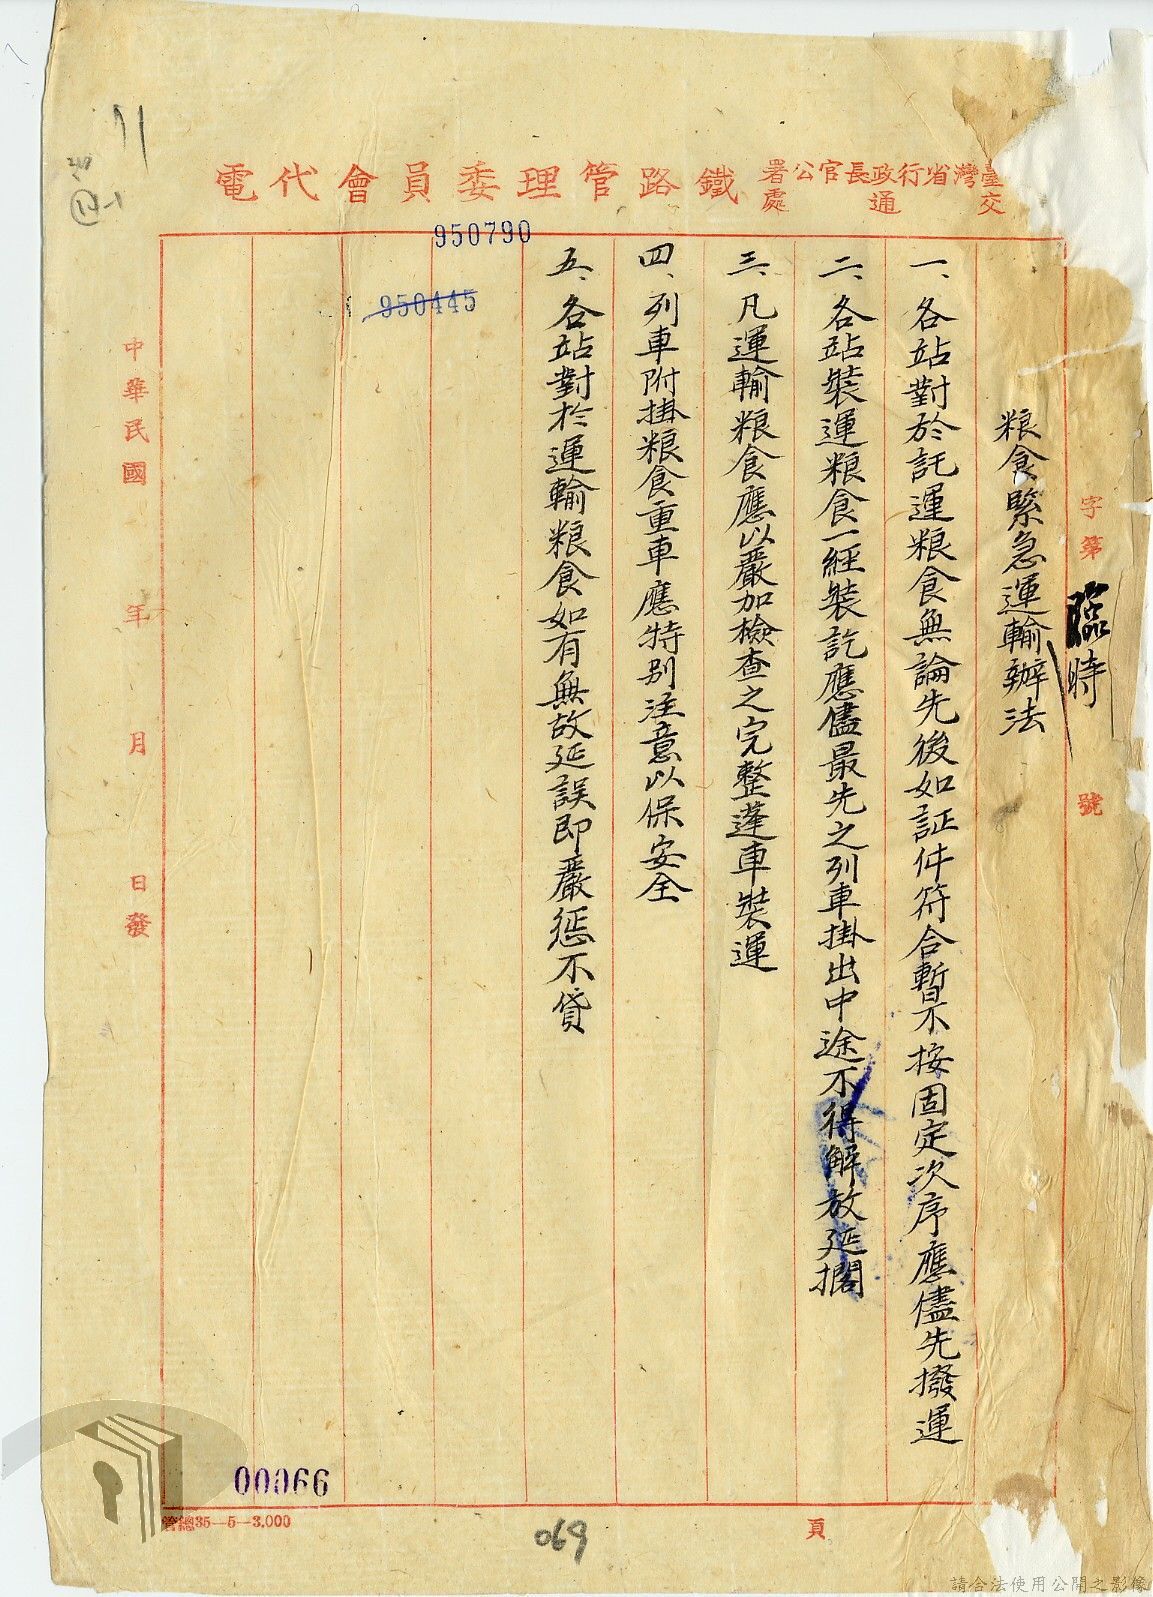 臺灣省行政長官公署
交通處
鐵路管理委員會代電
字第 號
臨時
糧食緊急運輸辦法
一、各站對於託運粮食無論先後如証件符合暫不按固定次序應儘先撥運
二、各站裝運粮食一經裝訖應儘最先之列車掛出中途不得解放延擱
三、凡運輸粮食應以嚴加檢查之完整蓬車裝運
四、列車附掛粮食重車應特別注意以保安全
五、各站對於運輸粮食如有無故延誤即嚴懲不貸
950790
950445
中華民國 年 月 日發
00066
管總35—5—3,000
069
頁
請合法使用公開之影像